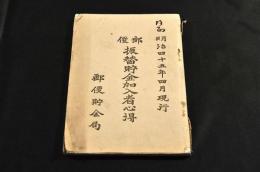 明治四十五年四月現行
郵便振替貯金加入者心得
郵便貯金局